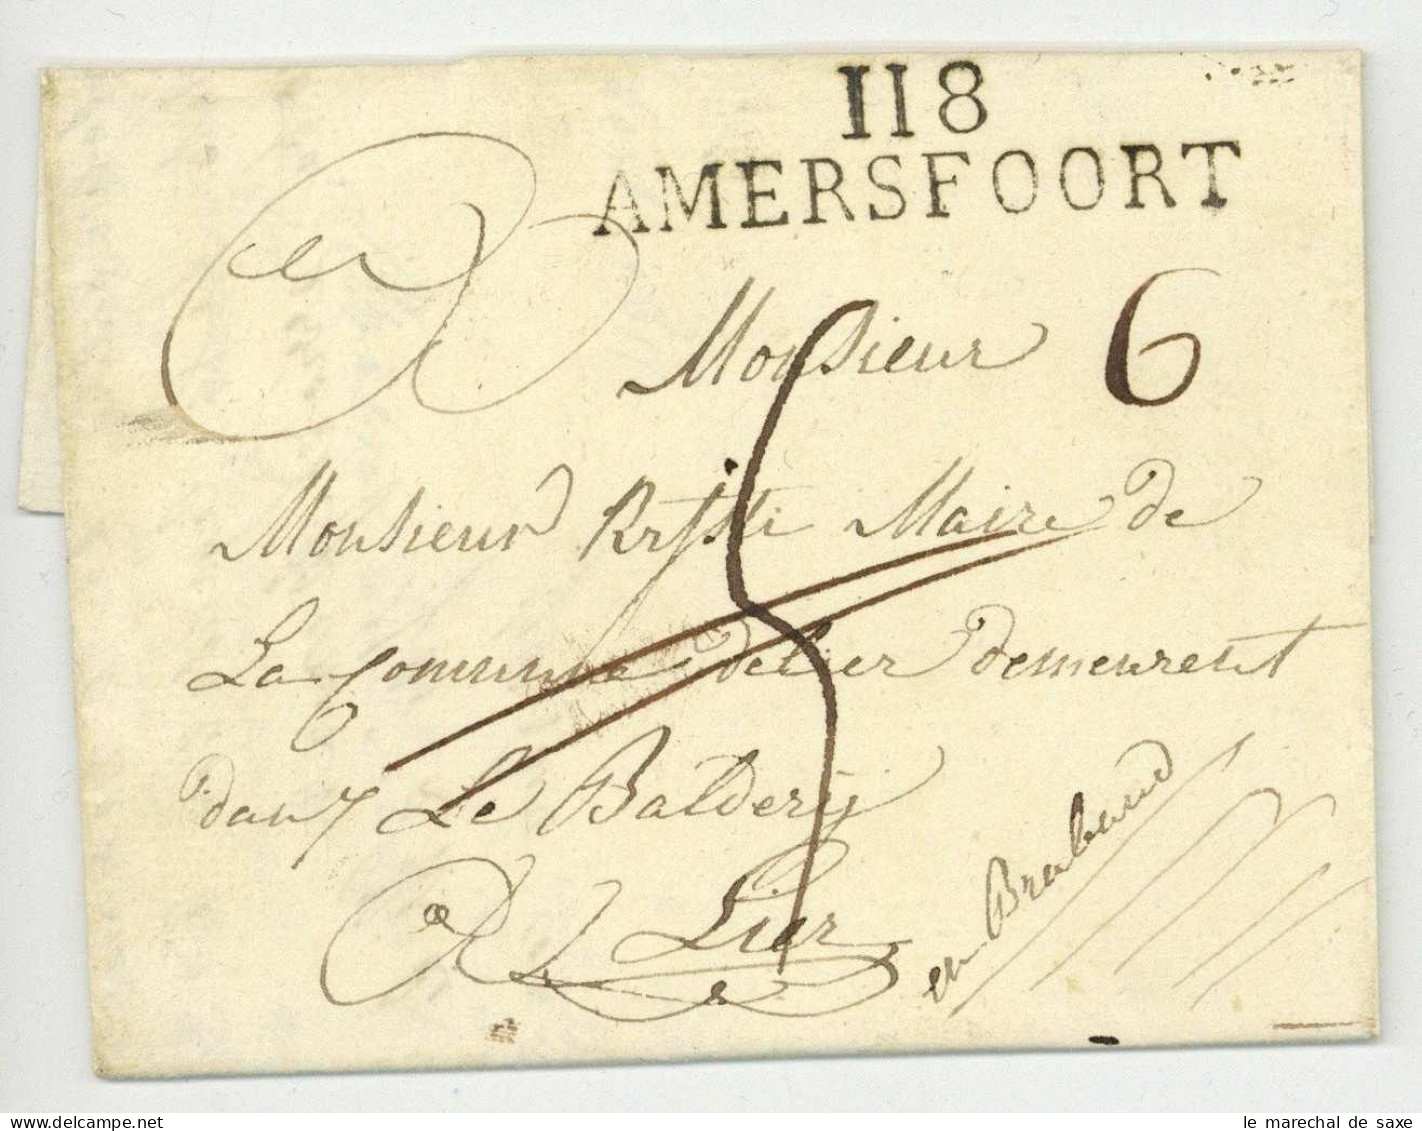 118
AMERSFOORT
Monsieur 6
Monsieur Maire de
La Commune de Lier demeurent
dans Le Balderij
a Lier
en Braband
le marechal de saxe